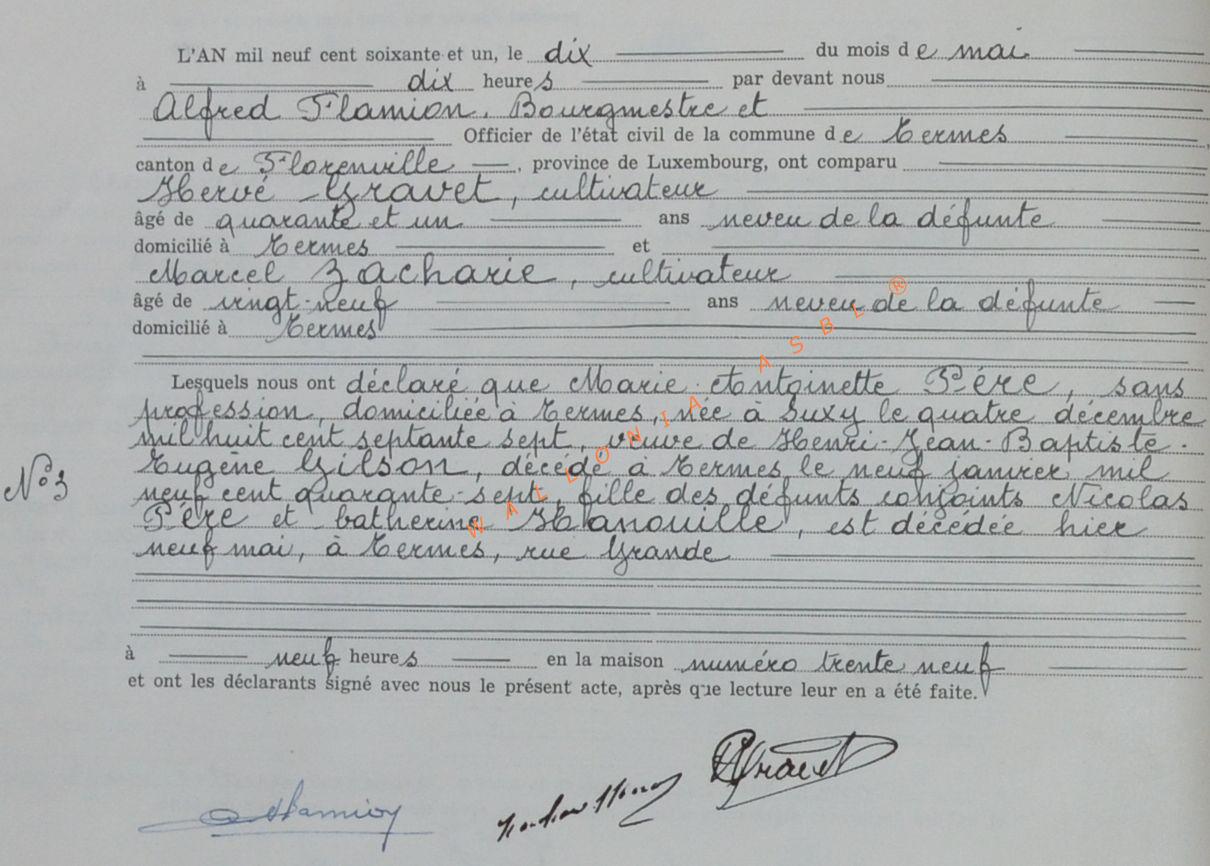 L'AN mil neuf cent soixante et un, le dix du mois de mai
à dix heures par devant nous
Alfred Flamion, Bourgmestre et
Officier de l'état civil de la commune de Termes
canton de Florenville, province de Luxembourg, ont comparu
Hervé Gravet, cultivateur
âgé de quarante et un ans neveu de la défunte
domicilié à Termes et
Marcel Zacharie, cultivateur
âgé de vingt-neuf ans neveu de la défunte
domicilié à Termes
Lesquels nous ont déclaré que Marie-Antoinette Père, sans
profession, domiciliée à Termes, née à Suxy le quatre décembre
mil huit cent septante sept, veuve de Henri-Jean-Baptiste-
Eugène Gilson, décédé à Termes le neuf janvier mil
N°3 neuf cent quarante-sept, fille des défunts conjoints Nicolas
Père et Catherine Hanouille, est décédée hier
neuf mai, à Termes, rue Grande
à neuf heures en la maison numéro trente neuf
et ont les déclarants signé avec nous le présent acte, après que lecture leur en a été faite.
WALLONIA ASBL ®
AFlamion
HGravet